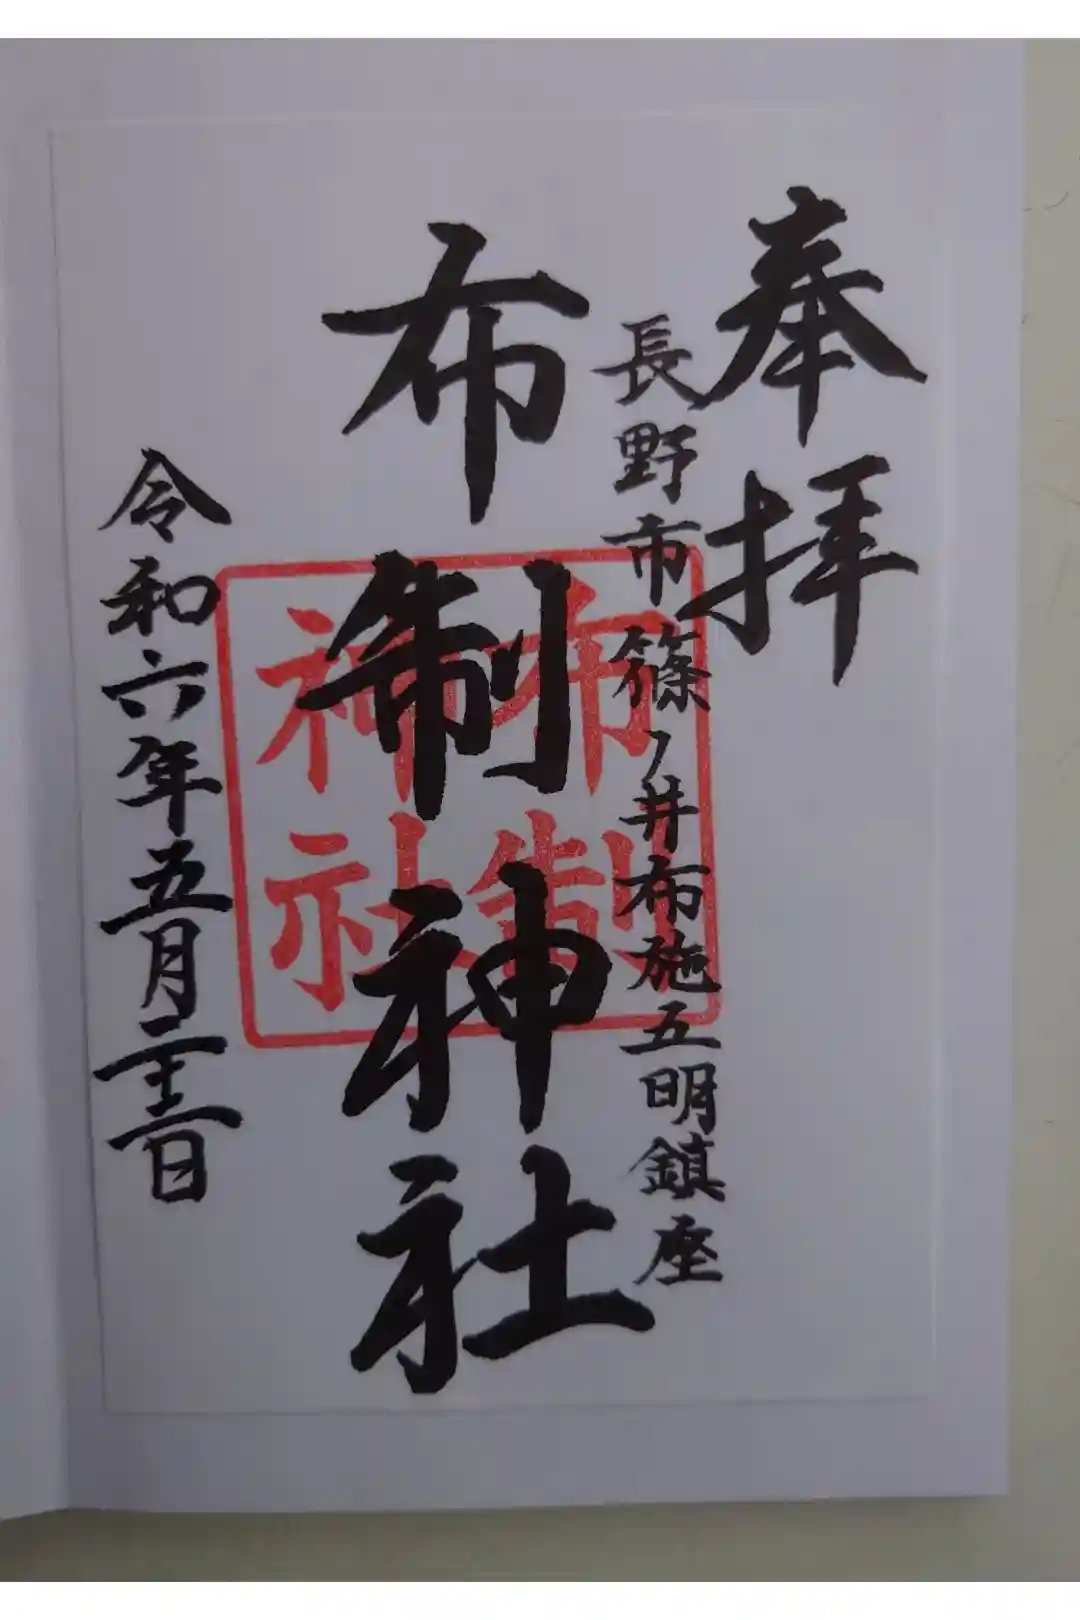 奉拝
長野市篠ノ井布施五明鎮座
布制神社
布制
神社
令和六年五月二十三日